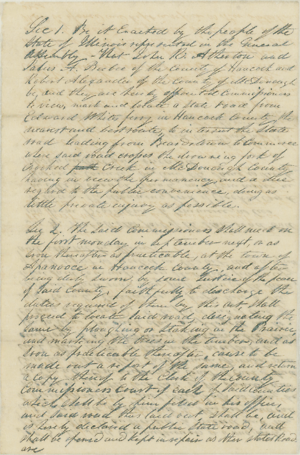 Sec 1. Be it Enacted by the people of the
State of Illinois represented in the General
Assembly That John R. Atherton and
of the County of Hancock and
of the County of McDonough
be, and they are hereby appointed Commissioners
to view, mark and locate a State road from
Edward Whites ferry in Hancock County, the
nearest and best route, to intersect the State
road leading from Beardstown to Commerce
where said road crosses the drowning fork of
Crooked Creek in McDonough County
having in view the permanency and a due
regard to the public convenience, doing as
little private injury as possible.
Sec 2. The said Commissioners shall meet on
the first monday in September next, or as
soon thereafter as practicable, at the town of
in Hancock County, and after
being duly sworn by some Justice of the peace
of said County, faithfully to discharge the
duties required of them by this act shall
proceed to locate said road, designating the
same by ploughing or staking in the Prairie
and marking the trees in the timber, and as
soon as practicable thereafter, cause to be
made out a report of the same, and return
a Copy thereof to the Clerk of the County
Commissioners Court of each of said Counties
which shall be by him filed in his office,
and said road thus laid out, shall be, and
is hereby declared a public State road, and
shall be opened and kept in repair as other state roads
are